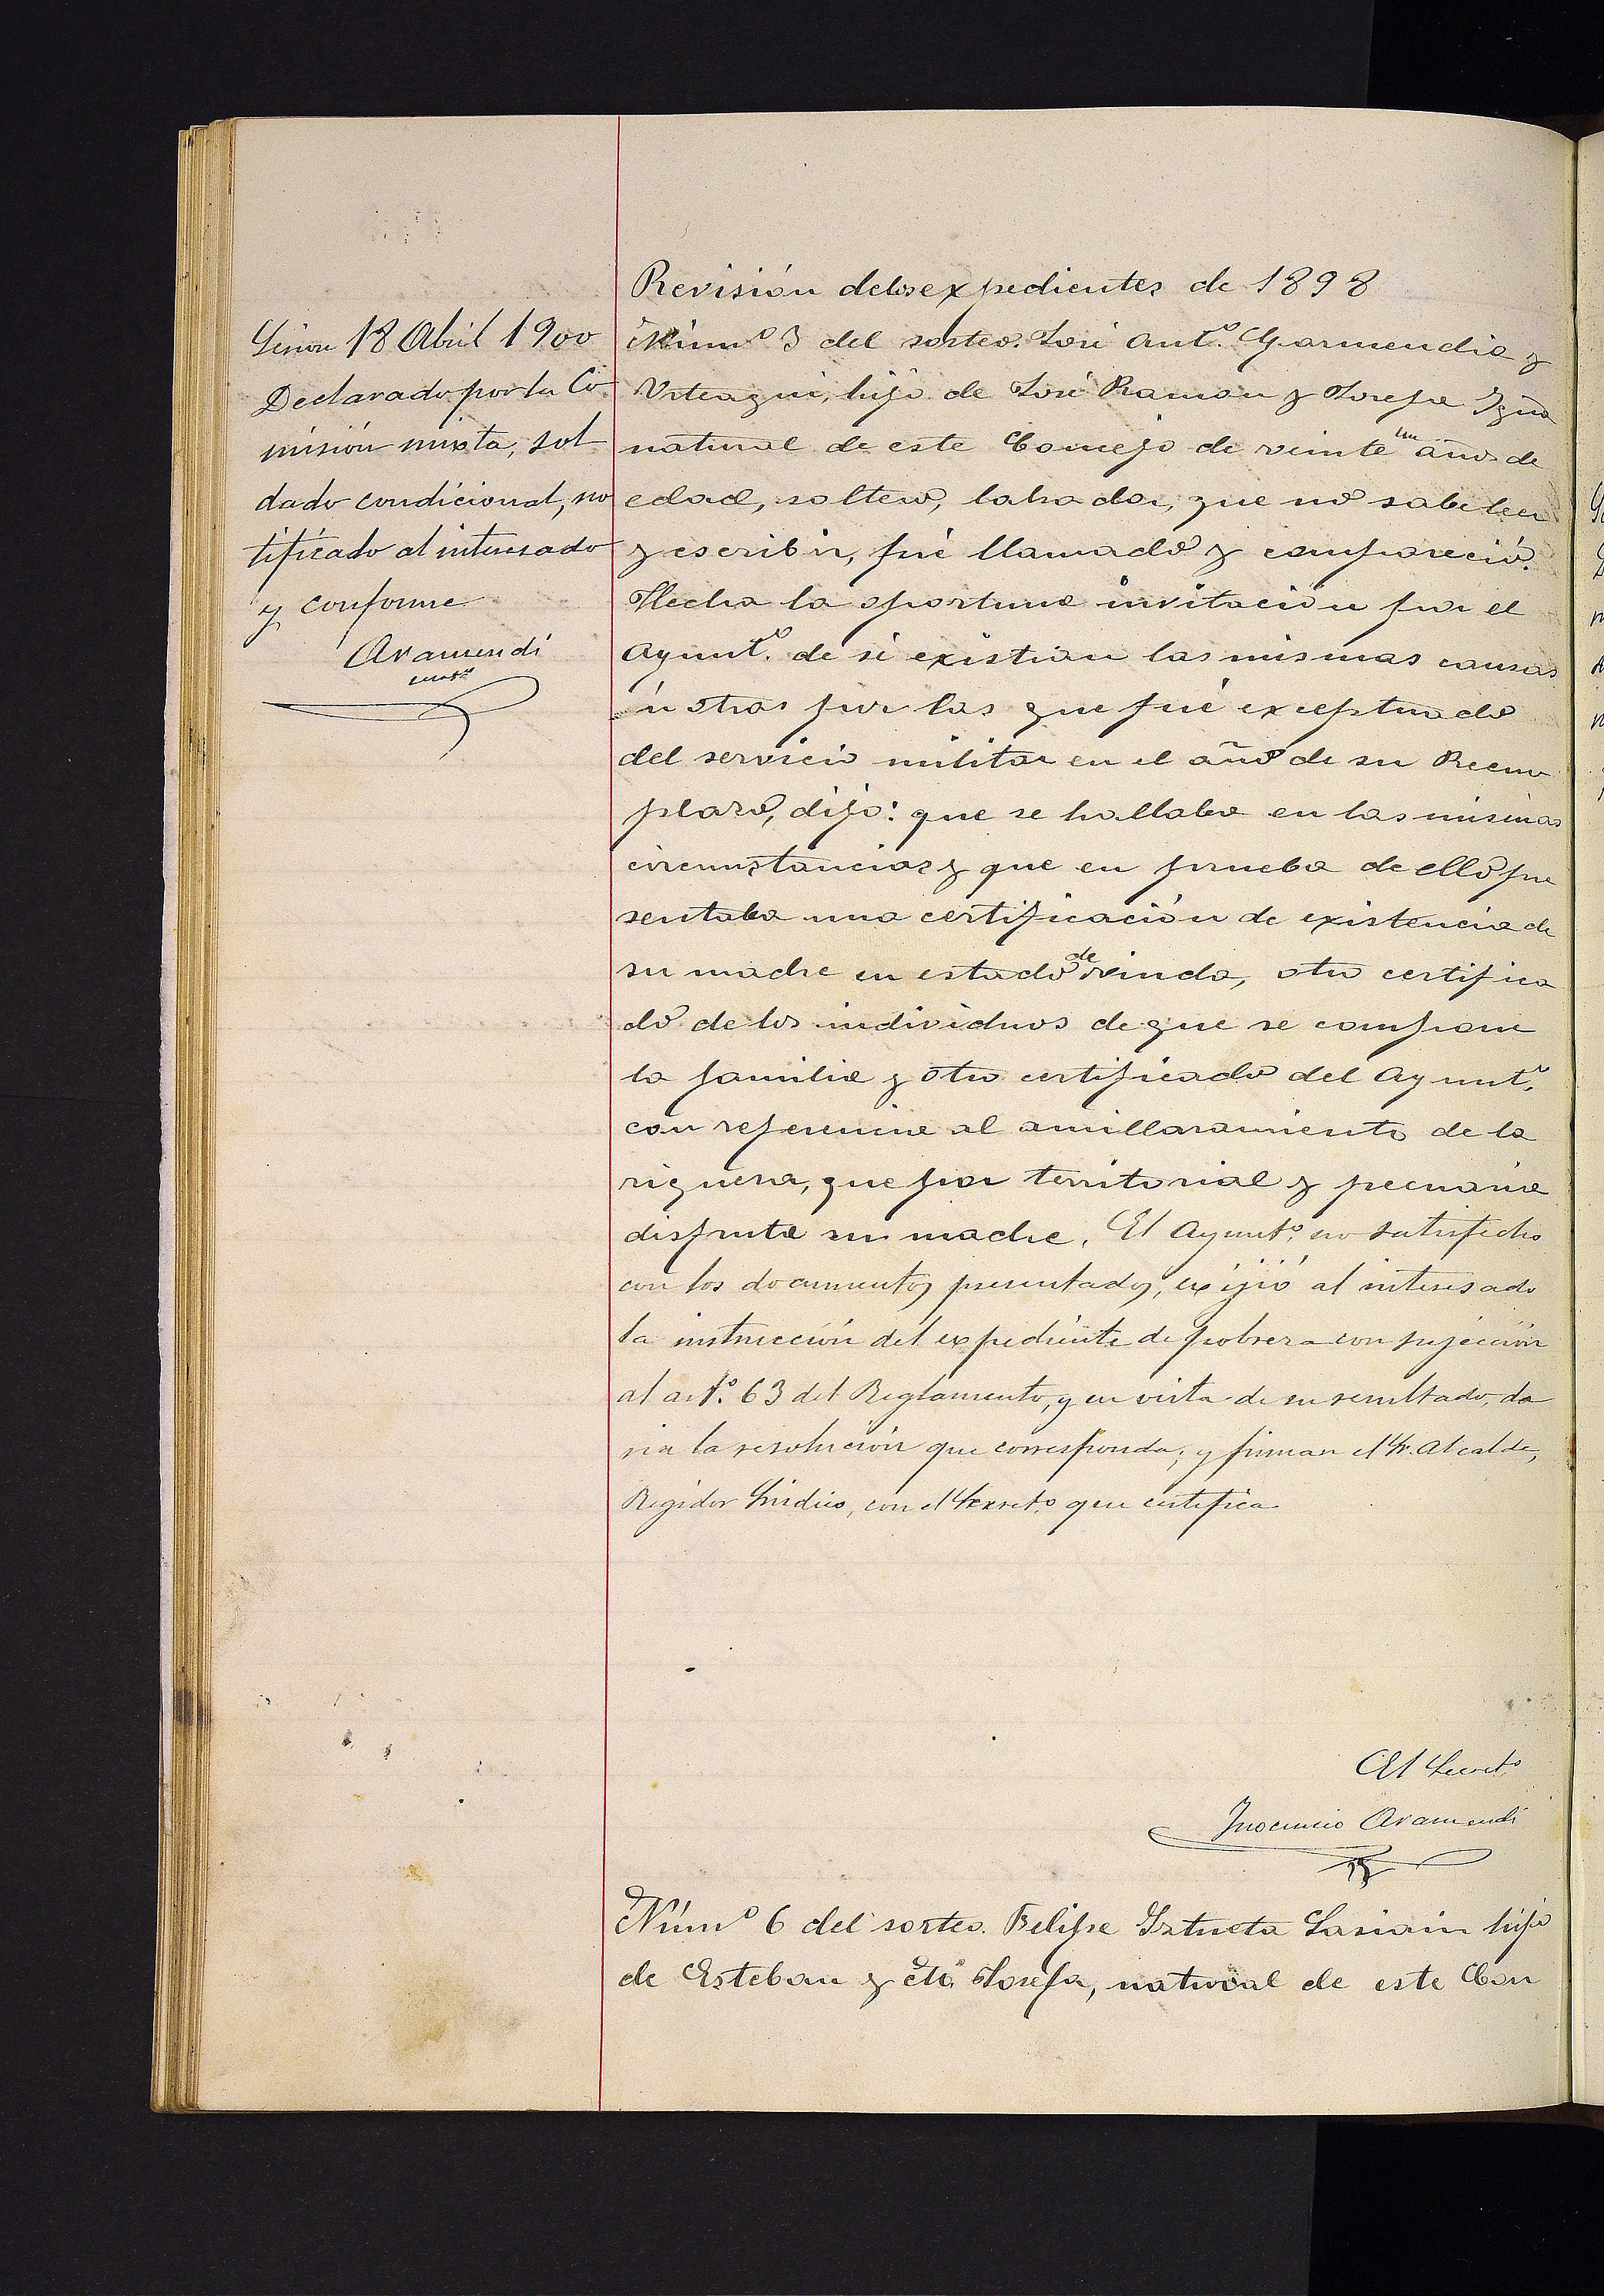 Revisión de los expedientes de 1898
Númº 3 del sorteo. José Antº. Garmendia y
Urteaga, hijo de José Ramon y Josefa Igña
natural de este Concejo de veinte un años de
edad, soltero, labrador, que no sabe leer
y escribir, fué llamado y compareció.
Hecha la oportuna invitación por el
Ayuntº. de si existian las mismas causas
ú otras por las que fué exceptuado
del servicio militar en el año de su Reem
plazo, dijo: que se hallaba en las mismas
circunstancias y que en prueba de ello pre
sentaba una certificación de existencia de
su madre en estado de viuda, otro certifica
do de los individuos de que se compone
la familia y otro certificado del Ayuntº.
con referencia al amillaramiento de la
riqueza, que por territorial y pecuaria
disfruta su madre. El Ayuntº. no satisfecho
con los documentos presentados, exijió al interesado
la instrucción del expediente de pobreza con sujeción
al artº. 63 del Reglamento, y en vista de su resultado, da
ria la resolución que corresponda; y firman el Sr. Alcalde,
Regidor Síndico, con el Secretº que certifica
El Secretº
Inocencio Aramendi
Númº 6 del sorteo. Felipe Iztueta Sasiain hijo
de Esteban y Mª Josefa, natural de este Con
18 Abril 1900
Declarado por la Co
misión mixta, sol
dado condicional, no
tificado al interesado
y conforme
Aramendi